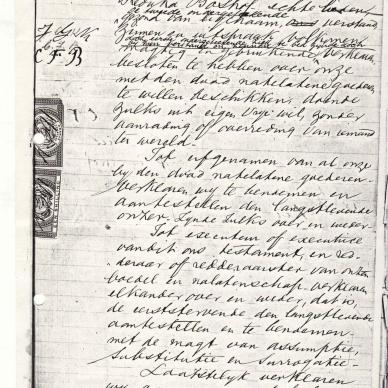 C F B
verstand
zinnen en uitspraak volkomen
magtig en gebruikende verklaren
besloten te hebben over onze
met den dood natelatene goederen
te willen beschikken, doende
zulks uit eigen vrye wil, zonder
aanrading of overreding van iemand
ter wereld.
Tot erfgenamen van al onze
by den dood natelatene goederen
verklaren wy te benoemen en
aantestellen den langstlevende
onzer zynde zulks over en weder
Tot executeur of executrice
van dit ons testament, en red-
deraar of redderaarster van onzen
boedel en nalatenschap verklaren
elkander over en weder, dat is,
de eerststervende den langstlevende
aantestellen en te benoemen
met de magt van assumptie,
Substitutie en Surrogatie.
Laatstelyk verklaren